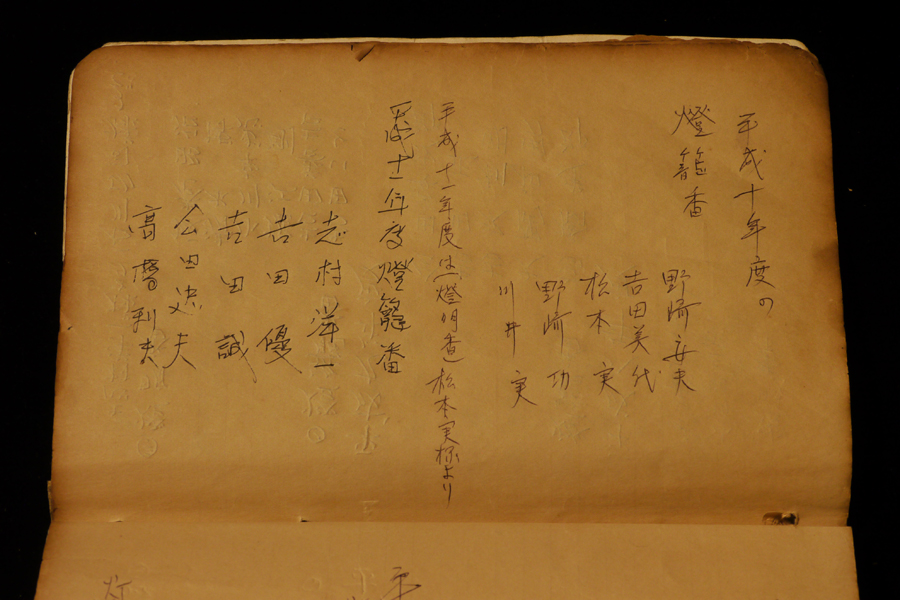 平成十年度の
燈籠番
野崎安夫
吉田美代
松本実
野崎功
川井実
平成十一年度は(燈明番)松本実様より
平成十一年度燈籠番
志村洋一
吉田優
吉田誠
会田忠夫
高橋利夫